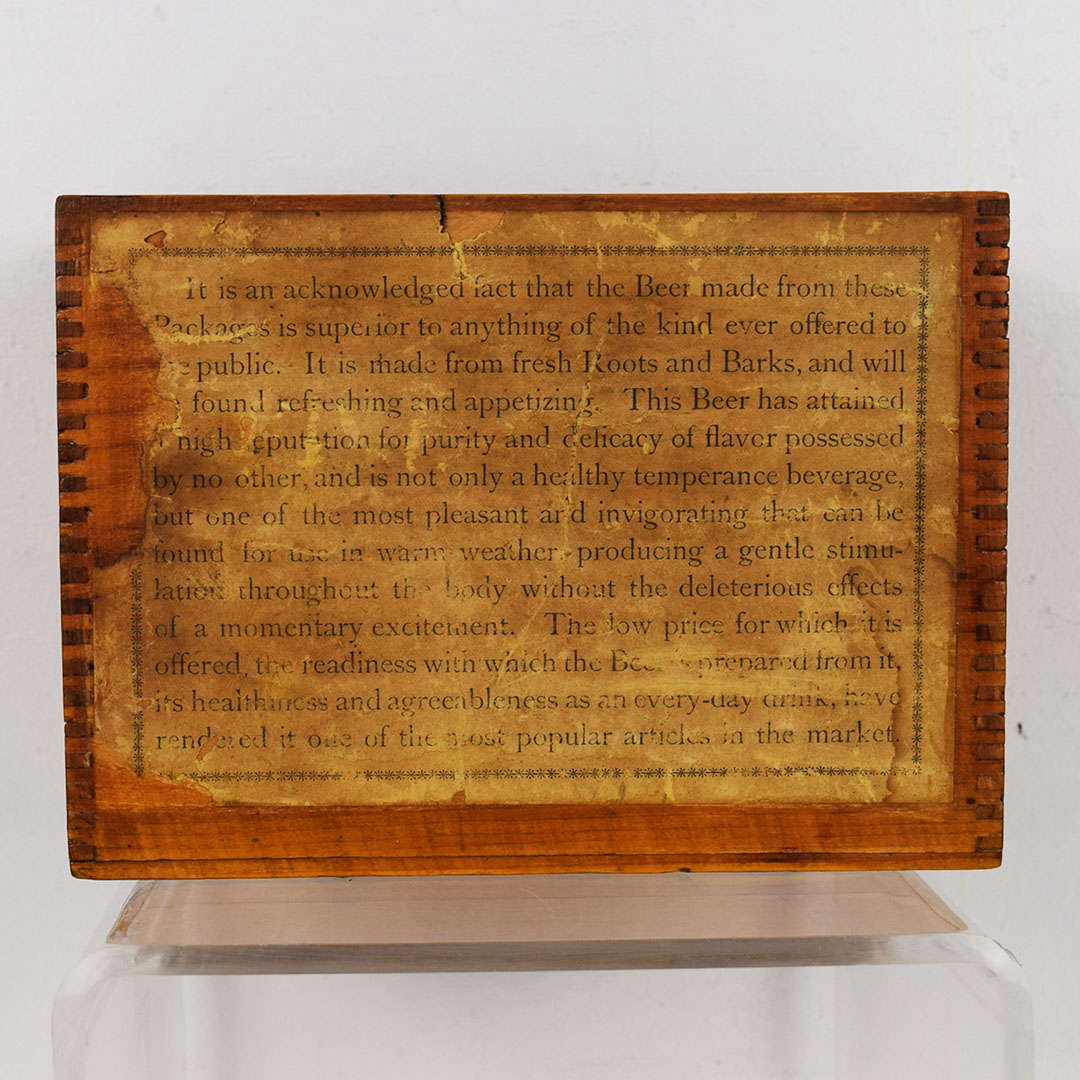 It is an acknowledged fact that the Beer made from these
Packages is superior to anything of the kind ever offered to
public. It is made from fresh Roots and Barks, and will
found refreshing and appetizing. This Beer has attained
high reputation for purity and delicacy of flavor possessed
by no other, and is not only a healthy temperance beverage,
but one of the most pleasant and invigorating that can be
found for use in warm weather, producing a gentle stimu-
lation throughout the body without the deleterious effects
of a momentary excitement. The low price for which it is
offered, the readiness with which the Beer is prepared from it,
its healthiness and agreeableness as an every-day drink, have
rendered it one of the most popular articles in the market.